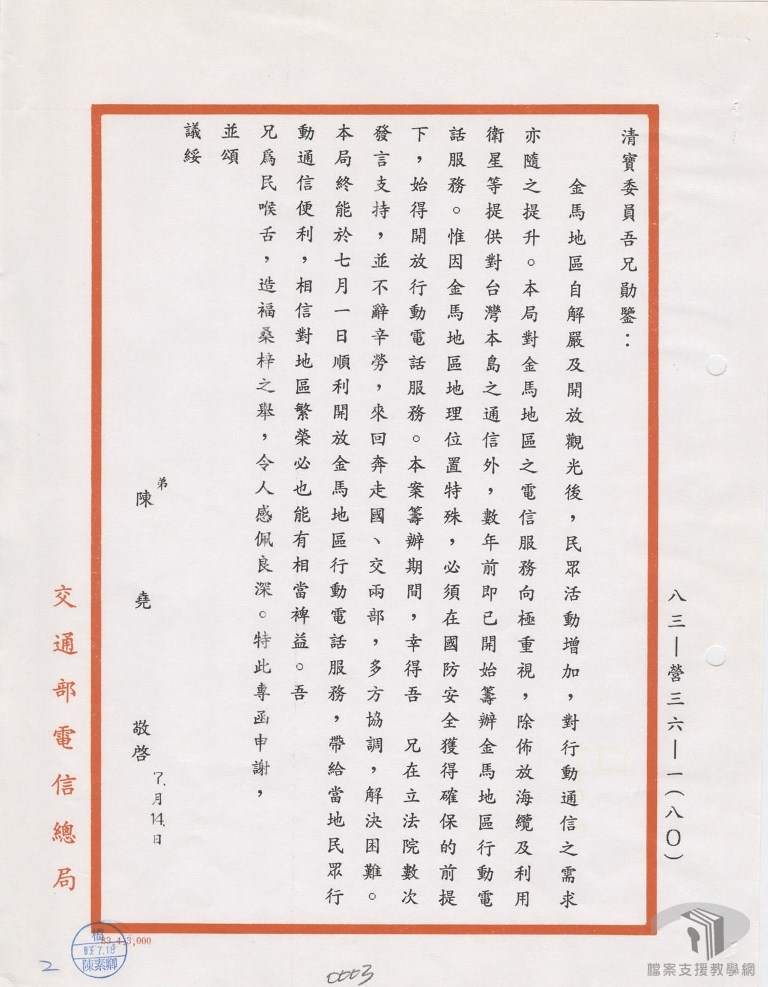 八三—營三六—一(八〇)
清寶委員吾兄勛鑒：
金馬地區自解嚴及開放觀光後，民眾活動增加，對行動通信之需求
亦隨之提升。本局對金馬地區之電信服務向極重視，除佈放海纜及利用
衛星等提供對台灣本島之通信外，數年前即已開始籌辦金馬地區行動電
話服務。惟因金馬地區地理位置特殊，必須在國防安全獲得確保的前提
下，始得開放行動電話服務。本案籌辦期間，幸得吾　兄在立法院數次
發言支持，並不辭辛勞，來回奔走國、交兩部，多方協調，解決困難。
本局終能於七月一日順利開放金馬地區行動電話服務，帶給當地民眾行
動通信便利，相信對地區繁榮必也能有相當裨益。吾
兄為民喉舌，造福桑梓之舉，令人感佩良深。特此專函申謝，
並頌
議綏
弟
陳　堯　敬啓
7.月14.日
交通部電信總局
83.4.3,000
陳素卿
2
0003
檔案支援教學網